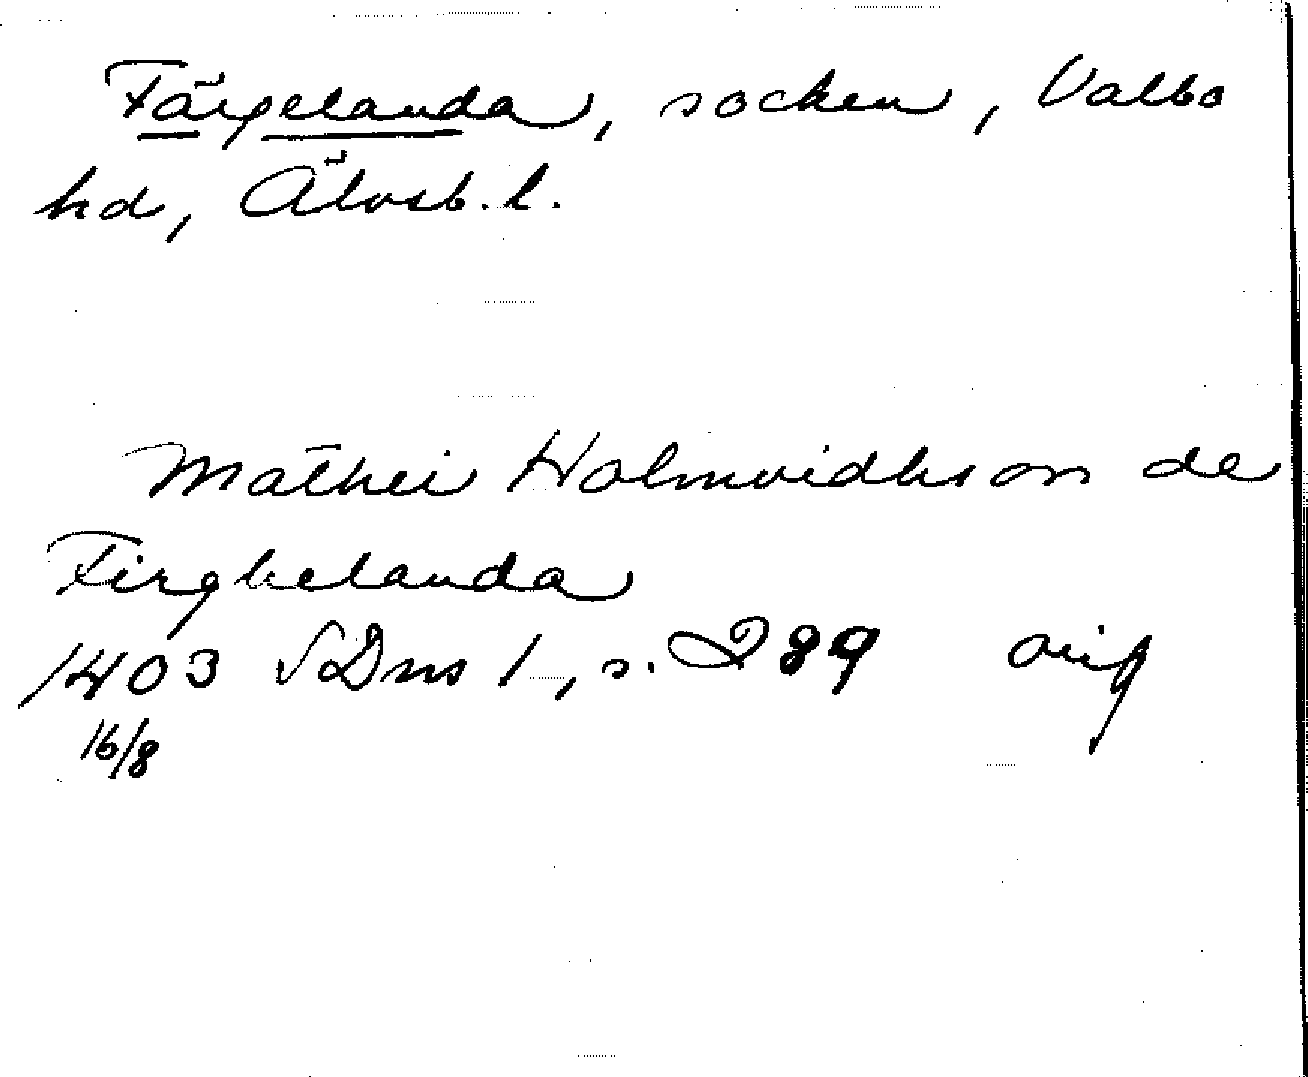 Färgelanda, socken, Valbo
hd, Älvsb. l.
Mathei Holmvidhson de
Firghelanda
1403 SDns 1, s. 289 orig
16/8